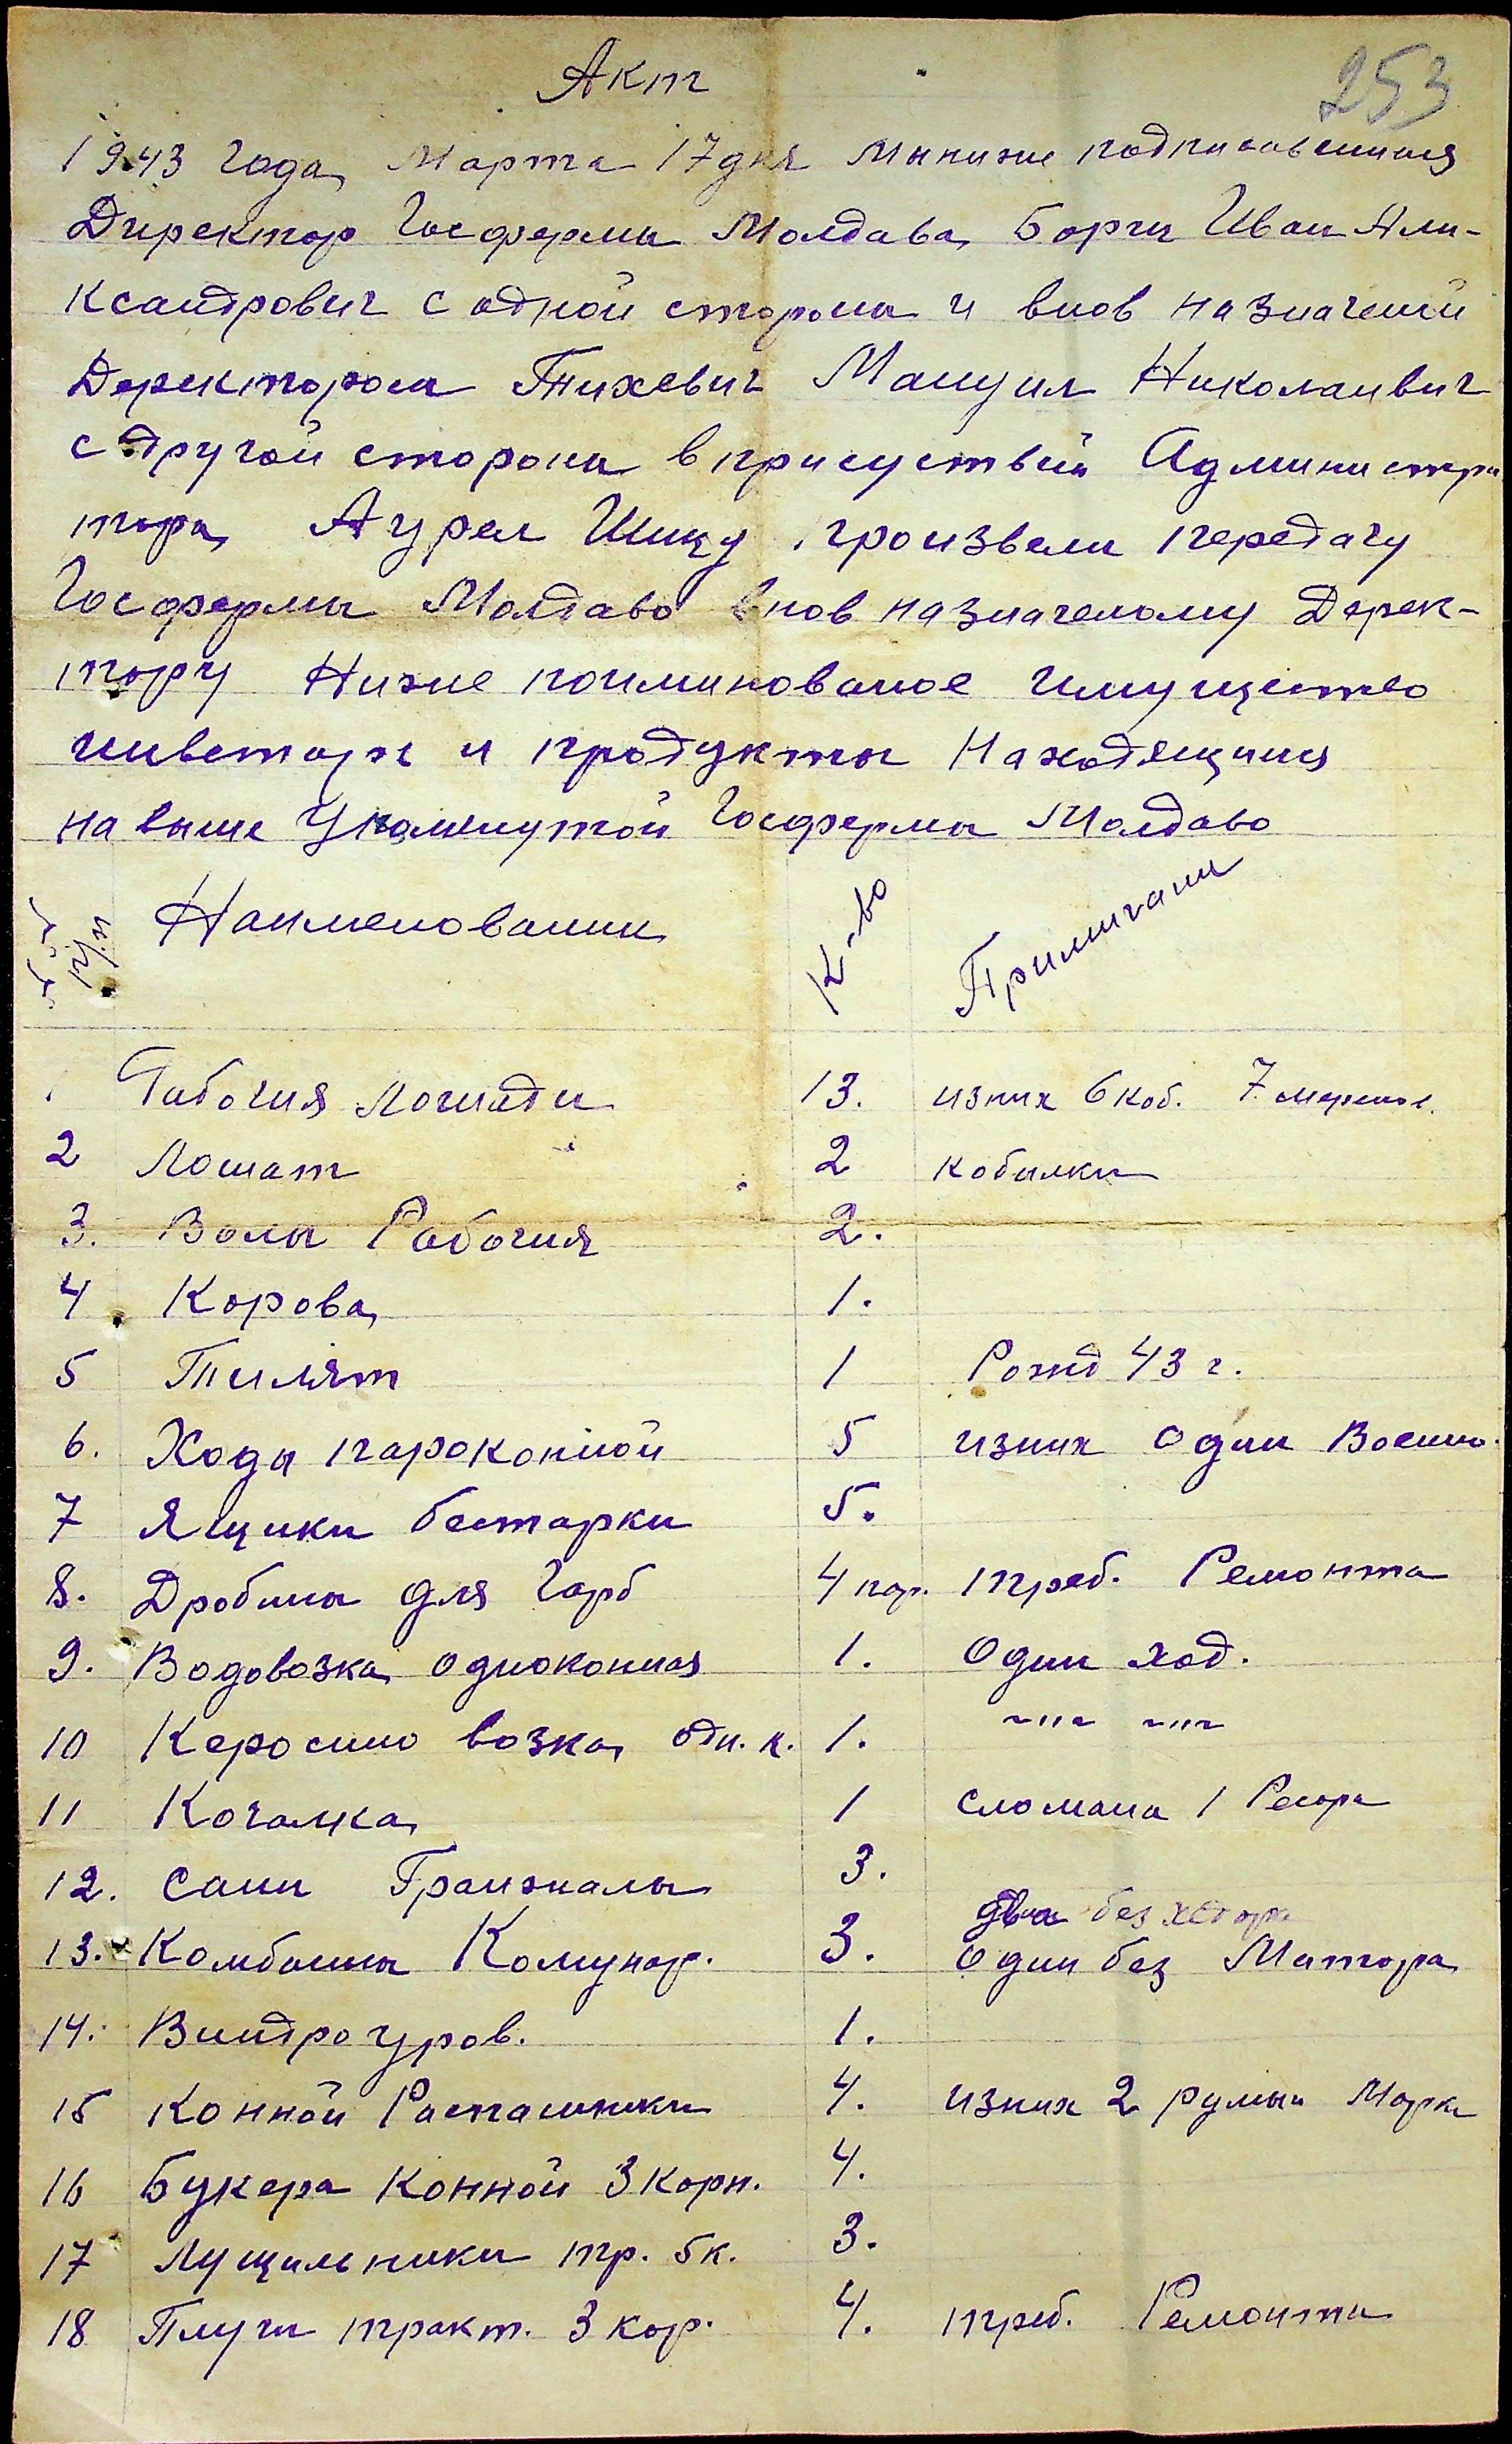 Акт
253
1943 года Марта 17 дня Мы ниже подписавшиися
Директор Госфермы Молдава Борги Иван Али-
ксандрович с одной стороны и внов назначеной
Деректором Тихевич Мануил Николаивич
с другой стороны в присуствии Администра
тора Аурел Шицу произвели передачу
Госфермы Молдаво внов назначеному Дерек-
тору Ниже поиминованое имущество
инвентарь и продукты Находящиися
на выше упоменутой Госфермы Молдаво
п/п Наименовании К-во Примичани
1 Рабочия Лошади 13. из них 6 коб. 7 меринов.
2 Лошат 2 кобылки
3. Волы Рабочия 2.
4 Корова 1.
5 Тилят 1 Рожд 43 г.
6. Хода пароконной 5 из них один Военно.
7 Ящики бестарки 5.
8. Дробины для Гарб 4 пар. треб. Ремонта
9. Водовозка одноконная 1. Один ход.
10 Керосино возка одн. к. 1. -"- -"-
11 Качалка 1 сломана 1 Ресора
12. Сани Гранжалы 3.
два без хедера
13. Комбаины Комунар. 3. один без Матора
14. Виндроуров. 1.
15 Конной Распашники 4. из них 2 румын Марки
16 Букера Конной 3 корп. 4.
17 Лущильники тр. 5 к. 3.
18 Плуги тракт. 3 кор. 4. треб. Ремонта